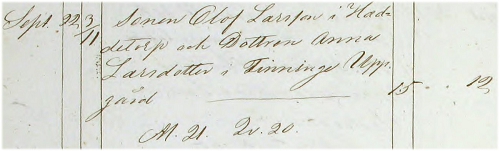 Sept. 22 3/11 Sonen Olof Larsson i Had-
detorp och Dottren Anna
Larsdotter i Finninge Upp-
gård 15 . . 12
M. 21. Qv. 20.